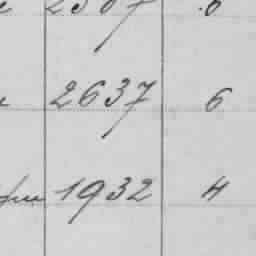 2637 6
1932 4